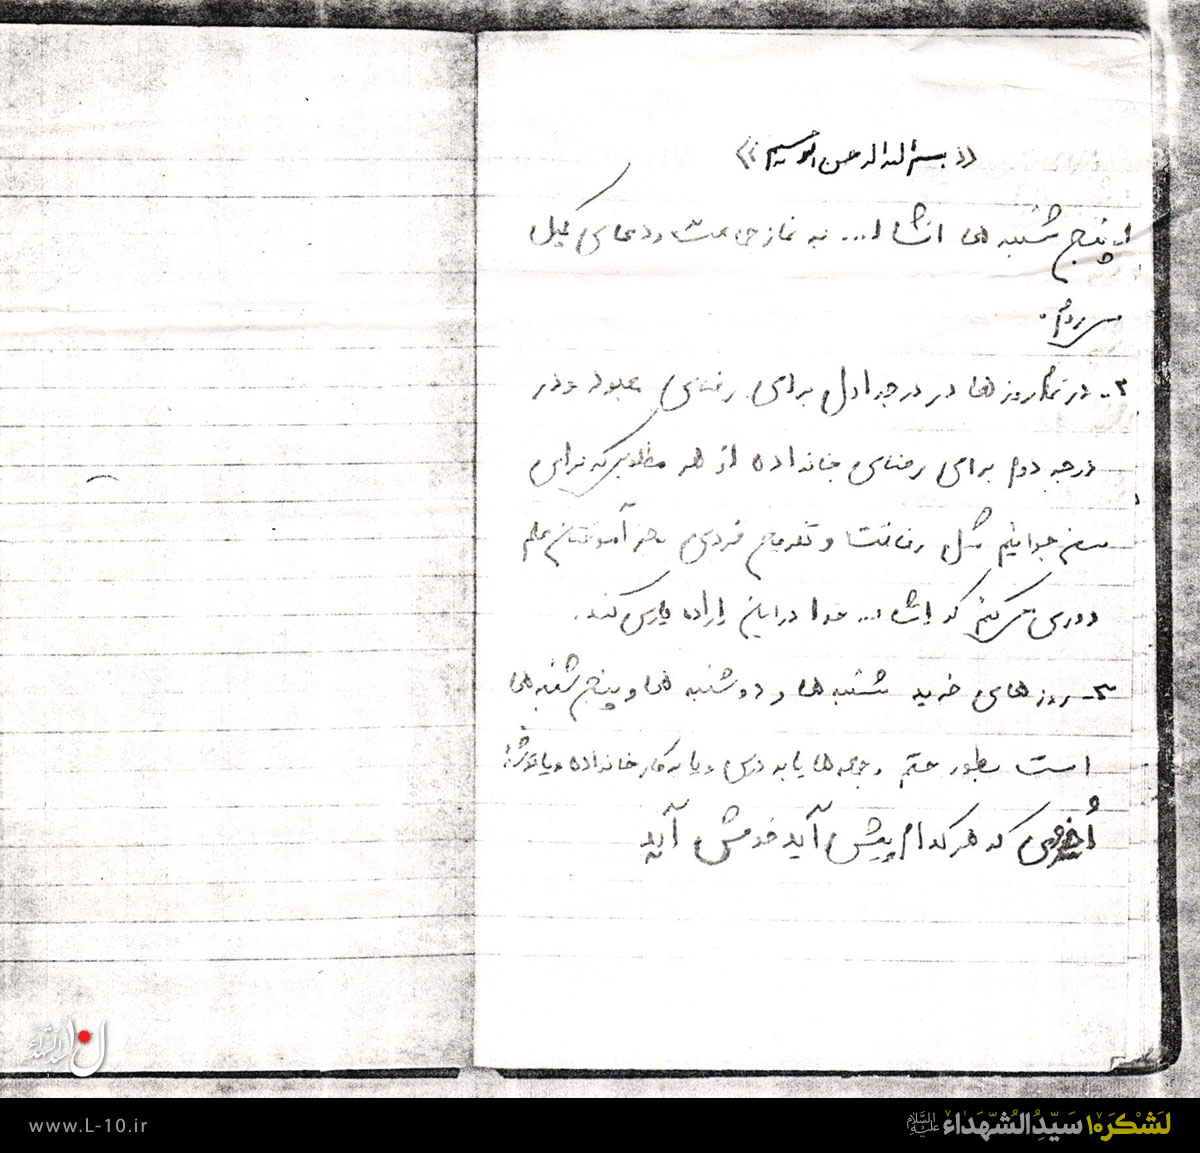 «بسم الله الرحمن الرحیم»
۱- پنج شنبه ها انشا ا... به نماز جماعت و دعای کمیل
می روم.
۲- در تمام روزها در درجه اول برای رضای معبود و در
درجه دوم برای رضای خانواده از هر مطلوبی که برای
سن جوانیم مثل رفاقت و تفریح فردی بجز آموختن علم
دوری می کنم که انشا ا... خدا در این اراده یاریم کند.
۳- روزهای خرید شنبه ها و دوشنبه ها و پنج شنبه ها
است بطور حتم و جمعه ها یا به درس و یا به کار خانواده و یا
اُخروی که هر کدام پیش آید خوش آید
www.L-10.ir
لَشْکَر۱۰ سَیِّدُ الشُّهَداء عَلَیْهِ السَّلام